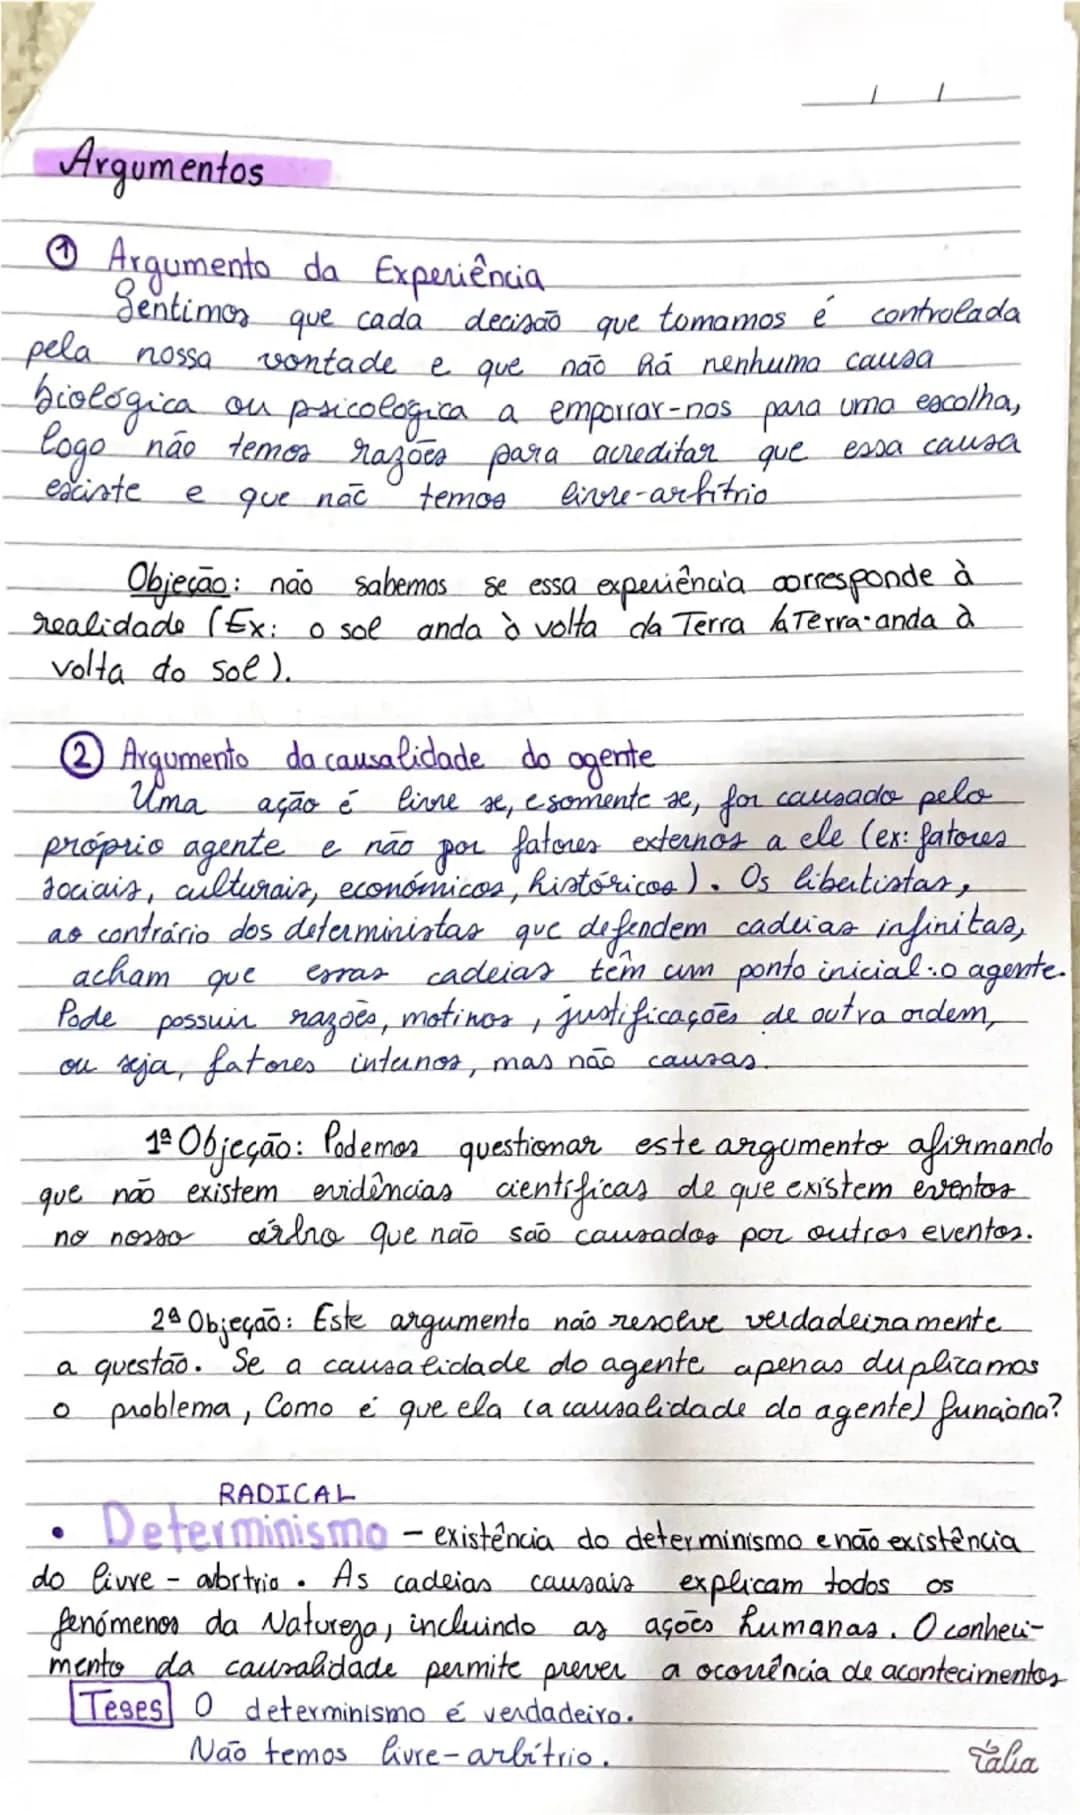 Argumentos
① Argumento da Experiência
Sentimos que cada decisão que tomamos é controlada
pela nossa vontade e que não há nenhuma causa
biológica ou psicológica a emporrar-nos para uma escolha,
logo não temos razões para acreditar que essa causa
existe e que não temos livre-arbítrio
Objeção: não sabemos se essa experiência corresponde à
realidade (Ex: o sol anda à volta da Terra a Terra anda à
volta do sol).
② Argumento da causalidade do agente
Uma ação é livre se, e somente se, for causado pelo
próprio agente e não por fatores externos a ele (ex: fatores
sociais, culturais, económicos, históricos). Os libertistas,
ao contrário dos deterministas que defendem cadeias infinitas,
acham que essas cadeias têm um ponto inicial: o agente.
Pode possuir razões, motivos, justificações de outra ordem,
ou seja, fatores internos, mas não causas.
1ª Objeção: Podemos questionar este argumento afirmando
que não existem evidências científicas de que existem eventos
no nosso que não são causados por outros eventos.
2ª Objeção: Este argumento não resolve verdadeiramente
a questão. Se a causalidade do agente apenas duplicamos
o problema, Como é que ela (a causalidade do agente) funciona?
RADICAL
• Determinismo - existência do determinismo e não existência
do livre - . As cadeias causais explicam todos os
fenómenos da Natureza, incluindo as ações humanas. O conheci-
mento da causalidade permite prever a ocorrência de acontecimentos
Teses O determinismo é verdadeiro.
Não temos livre-arbítrio.
Tália